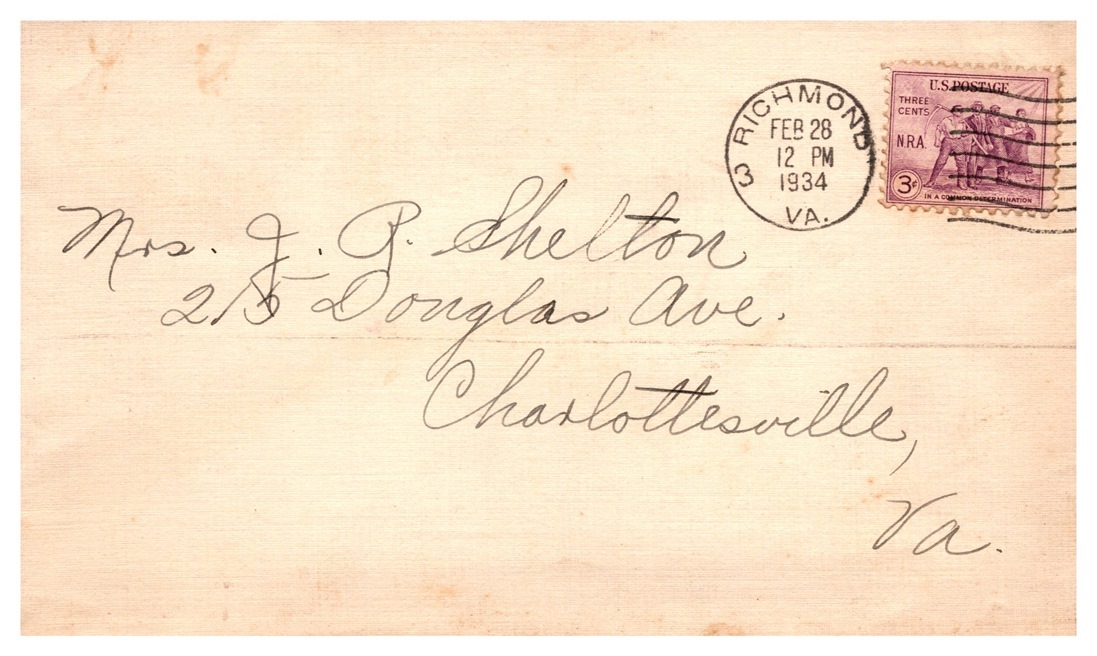 U.S. POSTAGE
THREE
CENTS
N.R.A.
3¢
IN A COMMON DETERMINATION
3 RICHMOND
FEB 28
12 PM
1934
VA.
Mrs. J. P. Shelton
215 Douglas Ave.
Charlottesville,
Va.